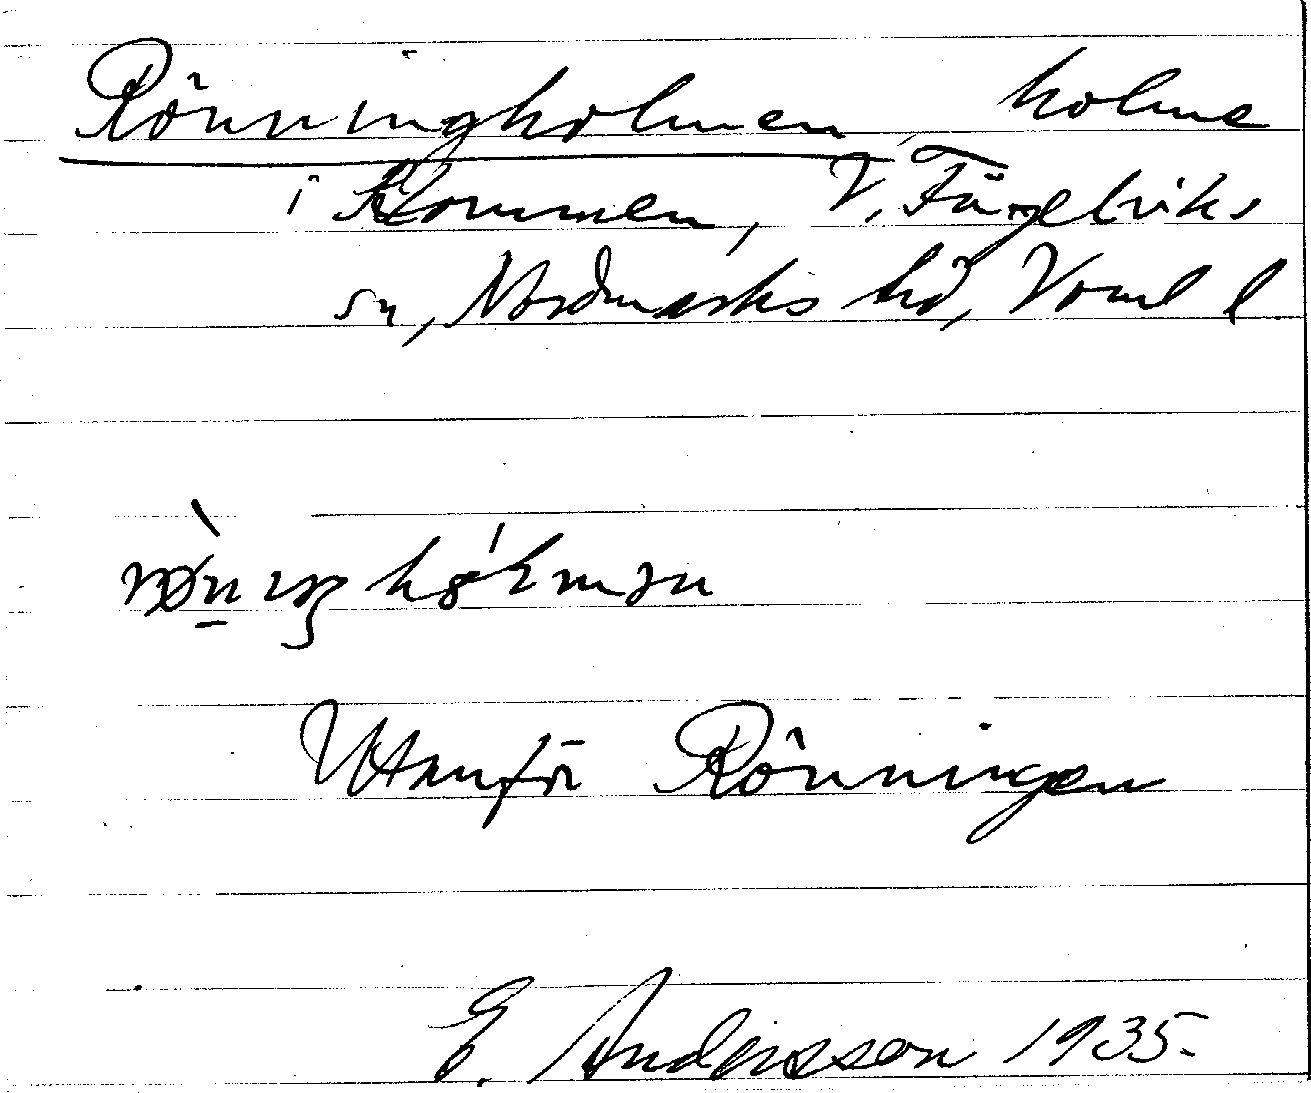 Rönningholmen, holme
i Blommen, V. Fågelviks
sn, Nordmarks hd, Vrml l
Utanför Rönningen
E. Andersson 1935.